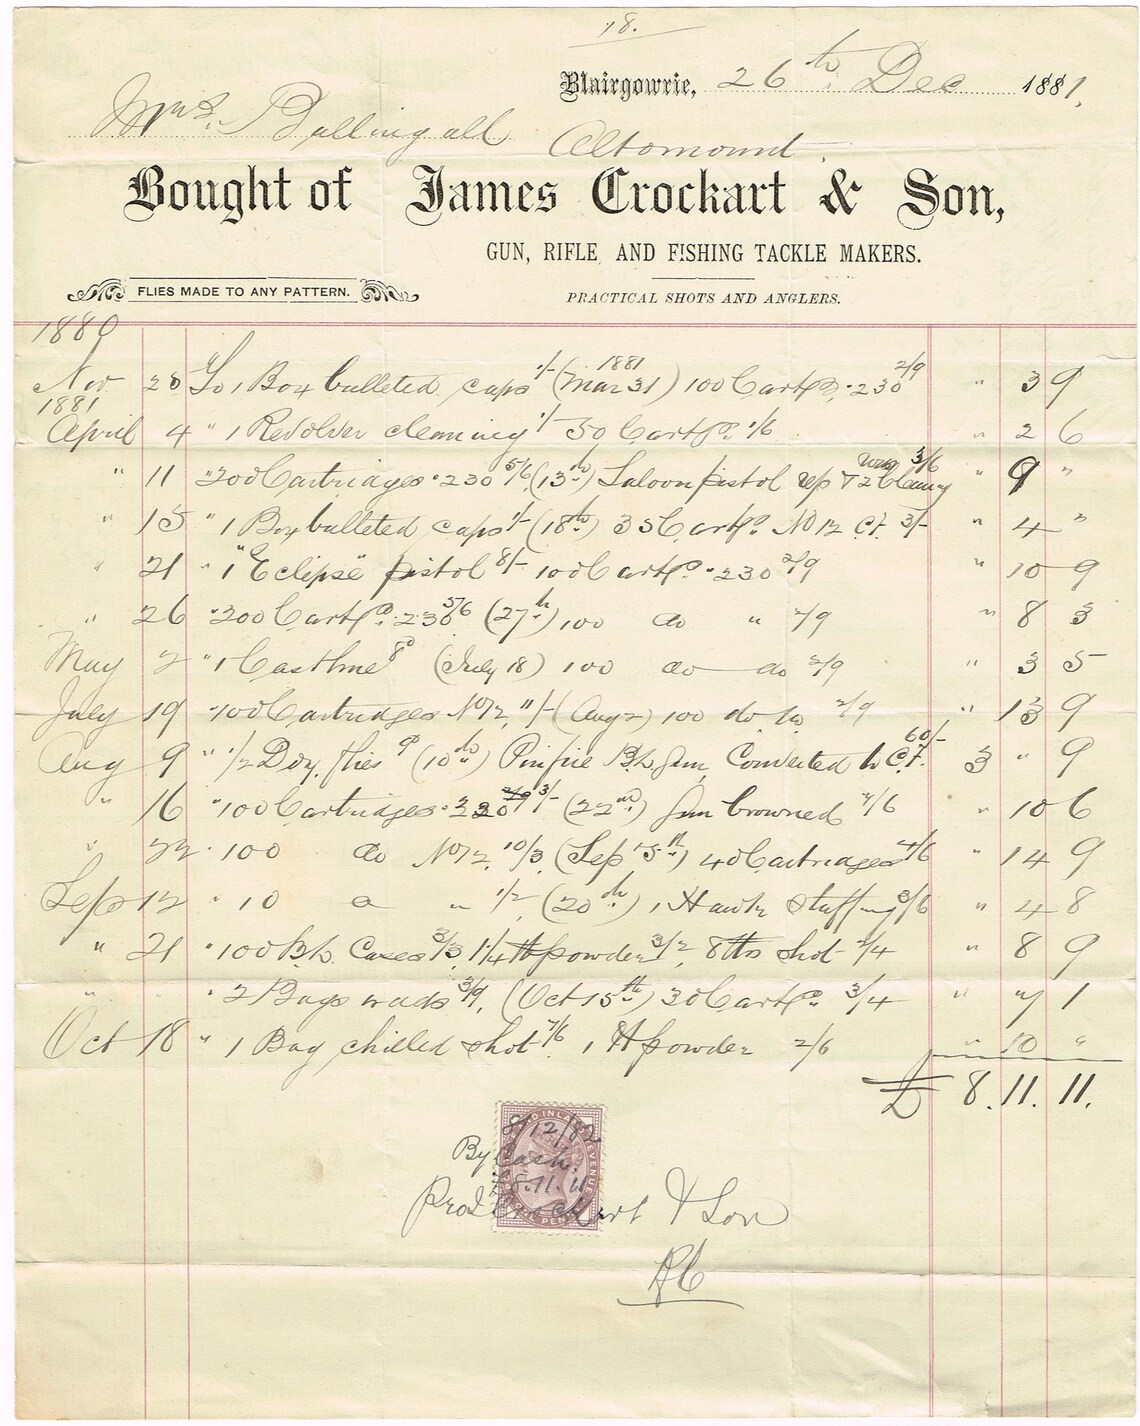 18.
Blairgowrie, 26th Dec 1881.
Mrs. Ballingall
Altamount.
Bought of James Crockart & Son,
GUN, RIFLE, AND FISHING TACKLE MAKERS.
FLIES MADE TO ANY PATTERN.
PRACTICAL SHOTS AND ANGLERS.
1880
Nov 28 To 1 Box bulleted caps 1/- (1881 Mar 31) 100 Cartgs. ·230 2/9 " 3 9
1881
April 4 " 1 Revolver cleaning 1/- 50 Cartgs. 1/6 " 2 6
" 11 " 200 Cartridges ·230 5/6 (13th) Saloon pistol rep & 2 cleang 3/6 " 9 "
" 15 " 1 Box bulleted caps 1/- (18th) 35 Cartgs. No 12 C.F. 3/- " 4 "
" 21 " 1 "Eclipse" pistol 8/- 100 Cartgs. ·230 2/9 " 10 9
" 26 " 200 Cartgs. ·230 5/6 (27th) 100 do " 2/9 " 8 3
May 2 " 1 Castline 8d (July 18) 100 do do 2/9 " 3 5
July 19 " 100 Cartridges No 12, 11/- (Aug 2) 100 do do 2/9 " 13 9
Aug 9 " 1/2 Doz. flies 9d (10th) Pinfire B.L. Gun Converted to C.F. 60/- 3 " 9
" 16 " 100 Cartridges ·230 2/9 3/- (22nd) Gun browned 7/6 " 10 6
" 22 " 100 do No 12, 10/3 (Sep 15th) 40 Cartridges 4/6 " 14 9
Sep 12 " 10 " 1/2, (20th) 1 Hawk stuffing 3/6 " 4 8
" 21 " 100 B.L. Cases 3/3, 1 1/4 lb powder 3/2, 8 lbs shot 2/4 " 8 9
" " 2 Bags wads 3/9, (Oct 15th) 30 Cartgs. 3/4 " 7 1
Oct 18 " 1 Bag chilled shot 7/6 1 lb powder 2/6 " 10 "
£ 8. 11. 11.
8/12/82
By Cash.
£8. 11. 11
Pro J Crockart & Son
RC